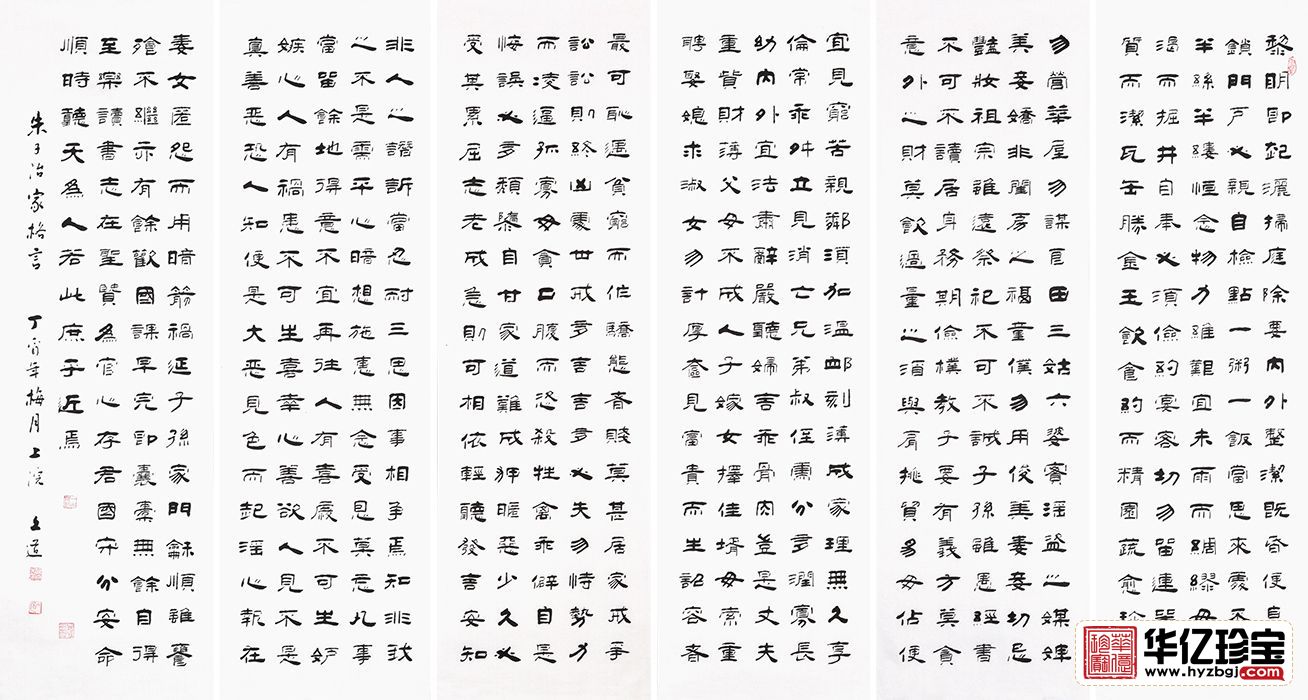 黎明即起灑掃庭除要內外整潔既昏便息
鎖門戶必親自檢點一粥一飯當思來處不
半絲半縷恒念物力維艱宜未雨而綢繆毋
渴而掘井自奉必須儉約宴客切勿留連器
質而潔瓦缶勝金玉飲食約而精園蔬愈珍
勿營華屋勿謀良田三姑六婆實淫盜之媒婢
美妾嬌非閨房之福童僕勿用俊美妻妾切忌
豔妝祖宗雖遠祭祀不可不誠子孫雖愚經書
不可不讀居身務期儉樸教子要有義方莫貪
意外之財莫飲過量之酒與肩挑貿易毋佔便
宜見窮苦親鄰須加溫卹刻薄成家理無久享
倫常乖舛立見消亡兄弟叔侄需分多潤寡長
幼內外宜法肅辭嚴聽婦言乖骨肉豈是丈夫
重貲財薄父母不成人子嫁女擇佳壻毋索重
聘娶媳求淑女勿計厚奩見富貴而生諂容者
最可恥遇貧窮而作驕態者賤莫甚居家戒爭
訟訟則終凶處世戒多言言多必失勿恃勢力
而凌逼孤寡毋貪口腹而恣殺牲禽乖僻自是
悔誤必多頹隳自甘家道難成狎昵惡少久必
受其累屈志老成急則可相依輕聽發言安知
非人之譖訴當忍耐三思因事相爭焉知非我
之不是需平心暗想施惠無念受恩莫忘凡事
當留餘地得意不宜再往人有喜慶不可生妒
嫉心人有禍患不可生喜幸心善欲人見不是
真善惡恐人知便是大惡見色而起淫心報在
妻女匿怨而用暗箭禍延子孫家門龢順雖饔
飧不繼亦有餘歡國課早完即囊橐無餘自得
至樂讀書志在聖賢為官心存君國守分安命
順時聽天為人若此庶乎近焉
朱子治家格言 丁酉年梅月上浣
华亿珍宝
www.hyzbgj.com